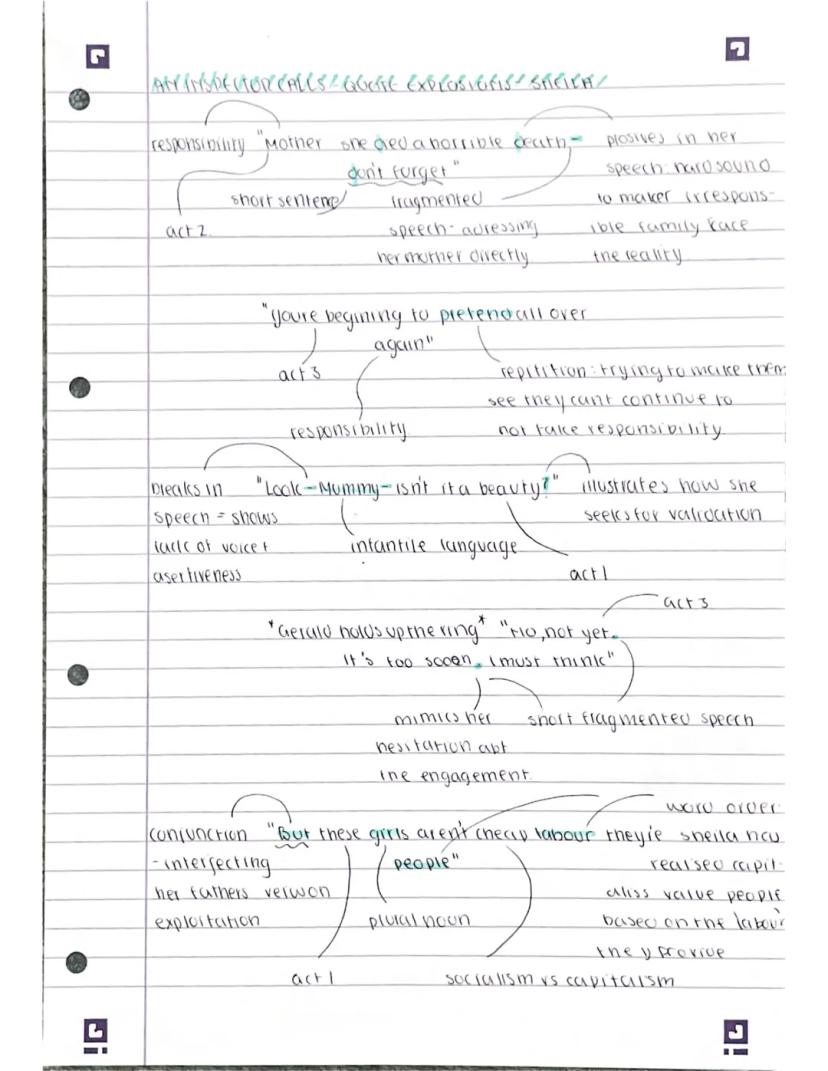 AN INSPECTOR CALLS: QUOTE EXPLOSIONS: SHEILA
responsibility "Mother she died a horrible death- plosives in her
don't forget" speech: hard sound
short sentence fragmented to maker irrespons-
act 2 speech- adressing ible family face
her mother directly the reality
"youre begining to pretend all over
again"
act 3 repitition: trying to make them
see they cant continue to
responsibility not take responsibility
breaks in "Look-Mummy-isn't it a beauty?" illustrates how she
speech = shows seeks for validation
lack of voice + infantile language
asertiveness act 1
act 3
*Gerald holds up the ring* "No, not yet.
It's too sooon. I must think"
mimics her short fragmented speech
hesitation abt
the engagement
word order:
conjunction "But these girls aren't cheap labour they're sheila
- interjecting people" realised capit-
her fathers value people
exploitation plural noun based on the labour
they provide
act 1 socialism vs capitalism